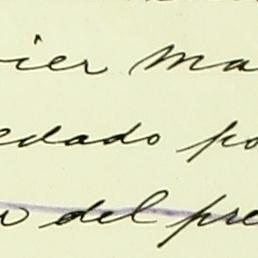 vier ma
edado po
w del pre